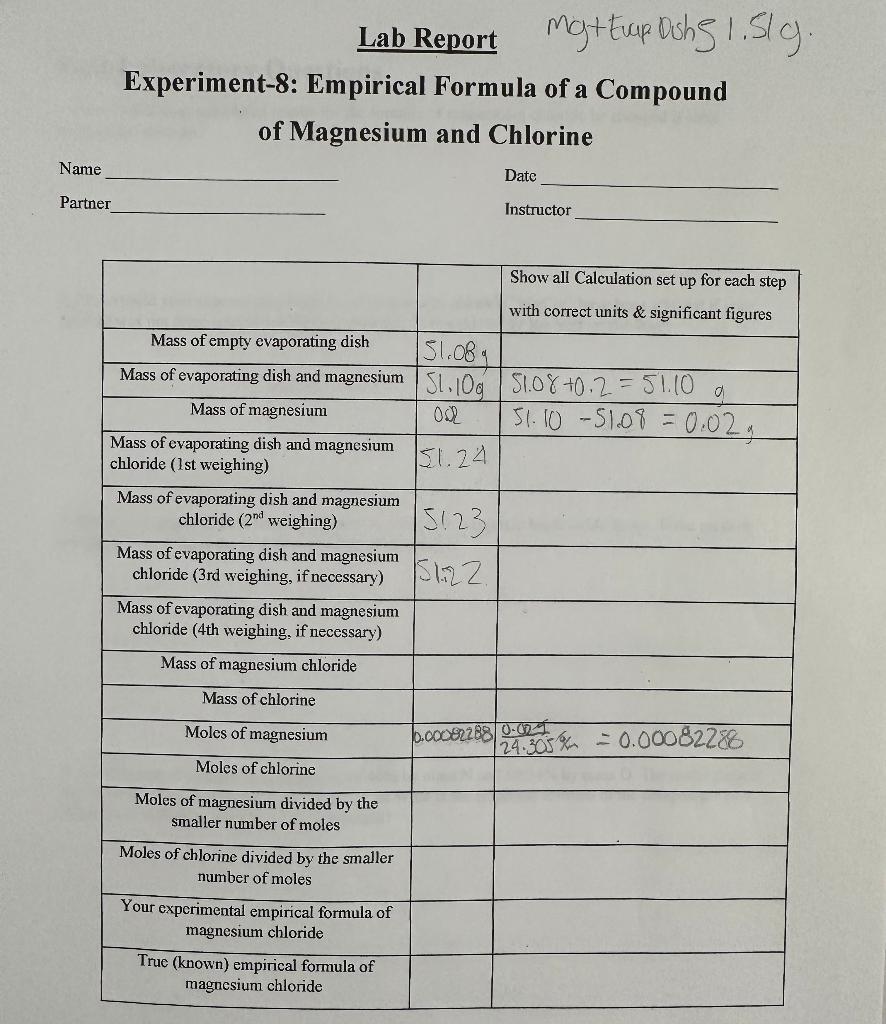 Lab Report
Mg+Evap Dish 51.51g.
Experiment-8: Empirical Formula of a Compound
of Magnesium and Chlorine
Name
Date
Partner
Instructor
Show all Calculation set up for each step
with correct units & significant figures
Mass of empty evaporating dish 51.08g
Mass of evaporating dish and magnesium 51.10g 51.08+0.2 = 51.10 g
Mass of magnesium 51.10 -51.08 = 0.02g
Mass of evaporating dish and magnesium
chloride (1st weighing) 51.24
Mass of evaporating dish and magnesium
chloride (2nd weighing) 51.23
Mass of evaporating dish and magnesium
chloride (3rd weighing, if necessary) 51.22
Mass of evaporating dish and magnesium
chloride (4th weighing, if necessary)
Mass of magnesium chloride
Mass of chlorine
Moles of magnesium 0.00082288 24.305 = 0.00082288
Moles of chlorine
Moles of magnesium divided by the
smaller number of moles
Moles of chlorine divided by the smaller
number of moles
Your experimental empirical formula of
magnesium chloride
True (known) empirical formula of
magnesium chloride